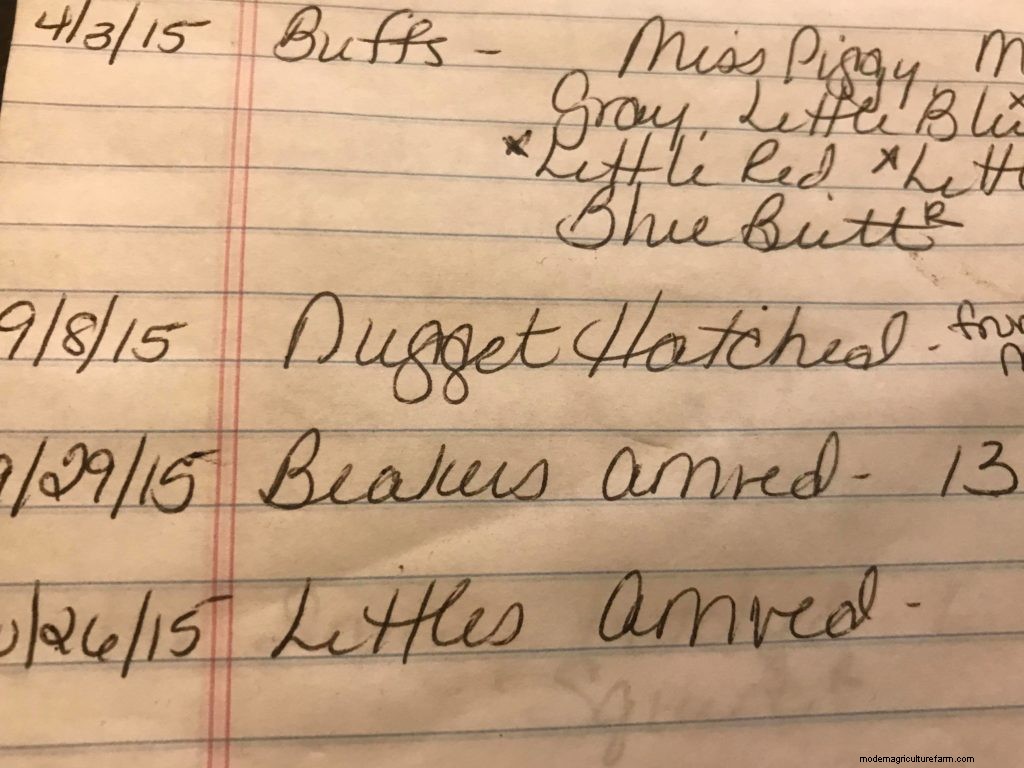 4/3/15 Buffs - Miss Piggy, M
Gray, Little Blu
* Little Red, * Litt
Blue Butt R
9/8/15 Nugget Hatched - from
9/29/15 Beakers arrived - 13
/26/15 Littles arrived -
modernagriculturefarm.com